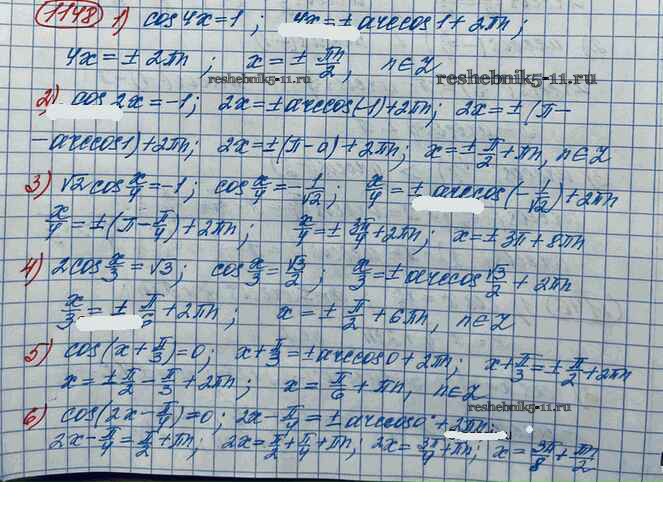 1148 1) cos4x=1; 4x=± arccos1+2πn;
4x=±2πn; x=± πn/2, n∈Z
reshebnik5-11.ru reshebnik5-11.ru
2) cos2x=-1; 2x=±arccos(-1)+2πn; 2x=±(π-
-arccos1)+2πn; 2x=±(π-0)+2πn; x=±π/2+πn, n∈Z
3) √2cos x/4=-1; cos x/4=-1/√2; x/4=± arccos(-1/√2)+2πn
x/4=±(π-π/4)+2πn; x/4=±3π/4+2πn; x=±3π+8πn
4) 2cos x/3=√3; cos x/3=√3/2; x/3=±arccos √3/2+2πn
x/3=± π/6+2πn; x=±π/2+6πn, n∈Z
5) cos(x+π/3)=0; x+π/3=±arccos0+2πn; x+π/3=±π/2+2πn
x=±π/2-π/3+2πn; x=π/6+πn, n∈Z
reshebnik5-11.ru
6) cos(2x-π/4)=0; 2x-π/4=±arccos0+2πn;
2x-π/4=π/2+πn; 2x=π/2+π/4+πn; 2x=3π/4+πn; x=3π/8+πn/2